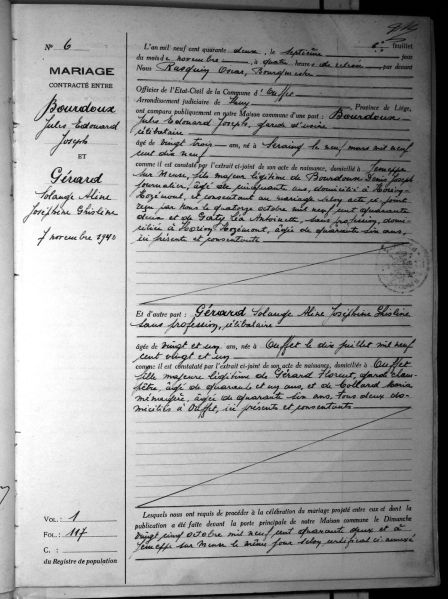 N° 6
MARIAGE
CONTRACTÉ ENTRE
Bourdoux
Jules Edouard
Joseph
ET
Gérard
Solange Aline
Joséphine Ghislène
7 novembre 1942
VOL: 1
FOL: 117
C. :
du Registre de population
6e feuillet
L'an mil neuf cent quarante deux, le septième jour
du mois de novembre, à quatre heures de relevée, par devant
Nous Rasquin Oscar, Bourgmestre
Officier de l'Etat-Civil de la Commune d'Ouffet
Arrondissement judiciaire de Huy, Province de Liége,
ont comparu publiquement en notre Maison commune d'une part : Bourdoux
Jules Edouard Joseph, garde d'usine,
célibataire
âgé de vingt trois ans, né à Seraing le neuf mars mil neuf
cent dix neuf
comme il est constaté par l'extrait ci-joint de son acte de naissance, domicilié à Jemeppe
sur Meuse, fils majeur légitime de Bourdoux Denis Joseph
journalier, âgé de cinquante ans, domicilié à Hozémont, et consentant au mariage selon acte ci-joint
reçu par Nous le quatorze octobre mil neuf cent quarante
deux et de Antoinette, sans profession, domi-
ciliée à Hozémont, âgée de quarante six ans,
ici présente et consentante
Et d'autre part : Gérard Solange Aline Joséphine Ghislène
sans profession, célibataire
âgée de vingt et un ans, née à Ouffet le dix juillet mil neuf
cent vingt et un
comme il est constaté par l'extrait ci-joint de son acte de naissance, domiciliée à Ouffet
fille majeure légitime de Gérard Florent, garde cham-
pêtre, âgé de quarante et un ans, et de Collard Maria
ménagère, âgée de quarante six ans, tous deux do-
miciliés à Ouffet, ici présents et consentants
Lesquels nous ont requis de procéder à la célébration du mariage projeté entre eux et dont la
publication a été faite devant la porte principale de notre Maison commune le Dimanche
vingt cinq octobre mil neuf cent quarante deux et à
Jemeppe sur Meuse le même jour selon certificat ci-annexé